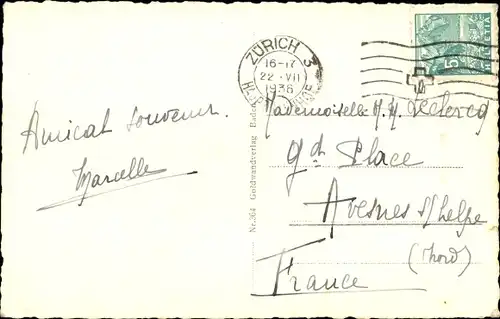 ZÜRICH 3
16-17
22·VII
1936
HELVETIA
5
Amical souvenir
Marcelle
Nr. 364 Goldwandverlag Baden
Mademoiselle M. M. Leclercq
gde Place
Avesnes s/helpe
(Nord)
France